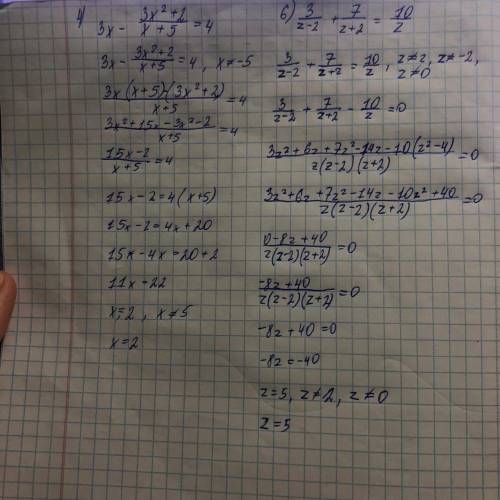 4) 3x - (3x²+2)/(x+5) = 4
3x - (3x²+2)/(x+5) = 4, x≠-5
(3x(x+5)-(3x²+2))/(x+5) = 4
(3x²+15x-3x²-2)/(x+5) = 4
(15x-2)/(x+5) = 4
15x-2=4(x+5)
15x-2=4x+20
15x-4x=20+2
11x=22
x=2, x≠5
x=2
6) 3/(z-2) + 7/(z+2) = 10/z
3/(z-2) + 7/(z+2) = 10/z, z≠2, z≠-2,
z≠0
3/(z-2) + 7/(z+2) - 10/z = 0
(3z²+6z+7z²-14z-10(z²-4))/(z(z-2)(z+2)) = 0
(3z²+6z+7z²-14z-10z²+40)/(z(z-2)(z+2)) = 0
(0-8z+40)/(z(z-2)(z+2)) = 0
(-8z+40)/(z(z-2)(z+2)) = 0
-8z+40=0
-8z=-40
z=5, z≠2, z≠0
z=5